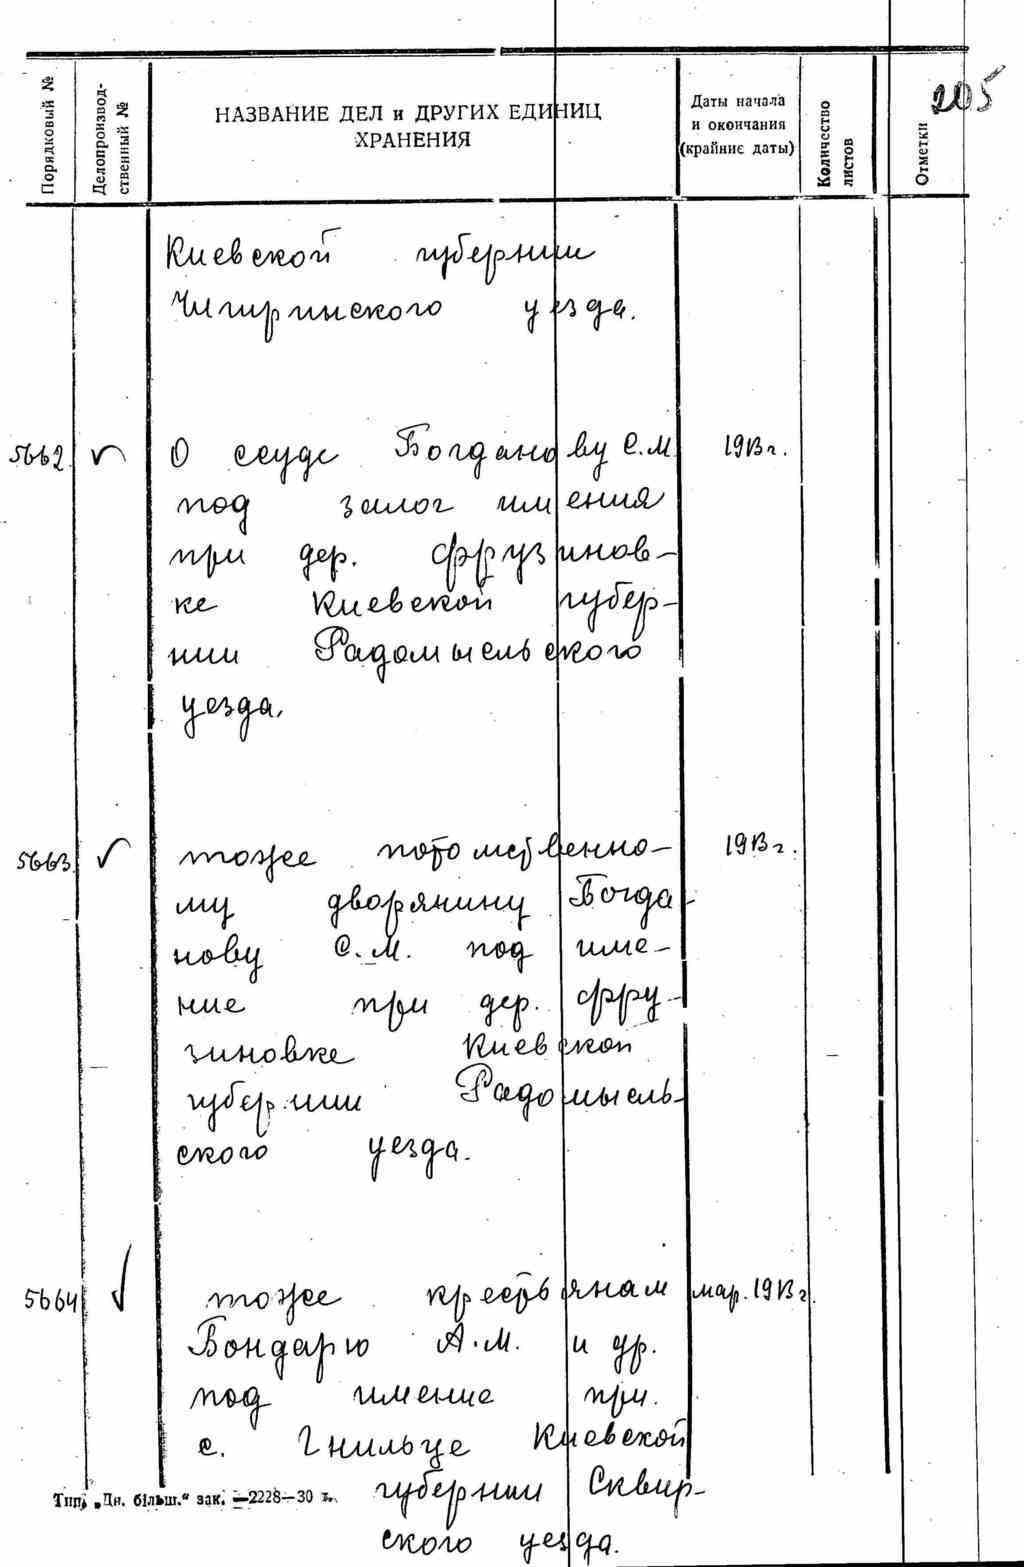 205
Порядковый №
Делопроизвод-
ственный №
НАЗВАНИЕ ДЕЛ и ДРУГИХ ЕДИНИЦ
ХРАНЕНИЯ
Даты начала
и окончания
(крайние даты)
Количество
листов
Отметки
Киевской губернии
Чигиринского уезда.
5662. О ссуде Богданову С.М. 1913 г.
под залог имения
при дер. Фрузинов-
ке Киевской губер-
нии Радомысльского
уезда.
5663. тоже потомственно- 1913 г.
му дворянину Богда-
нову С.М. под име-
ние при дер. Фру-
зиновке Киевской
губернии Радомысль-
ского уезда.
5664 тоже крестьянам мар. 1913 г.
Бондарю А.М. и др.
под имение при
с. Гнильце Киевской
губернии Сквир-
ского уезда.
Тип. „Дн. більш." зак. —2228—30 т.